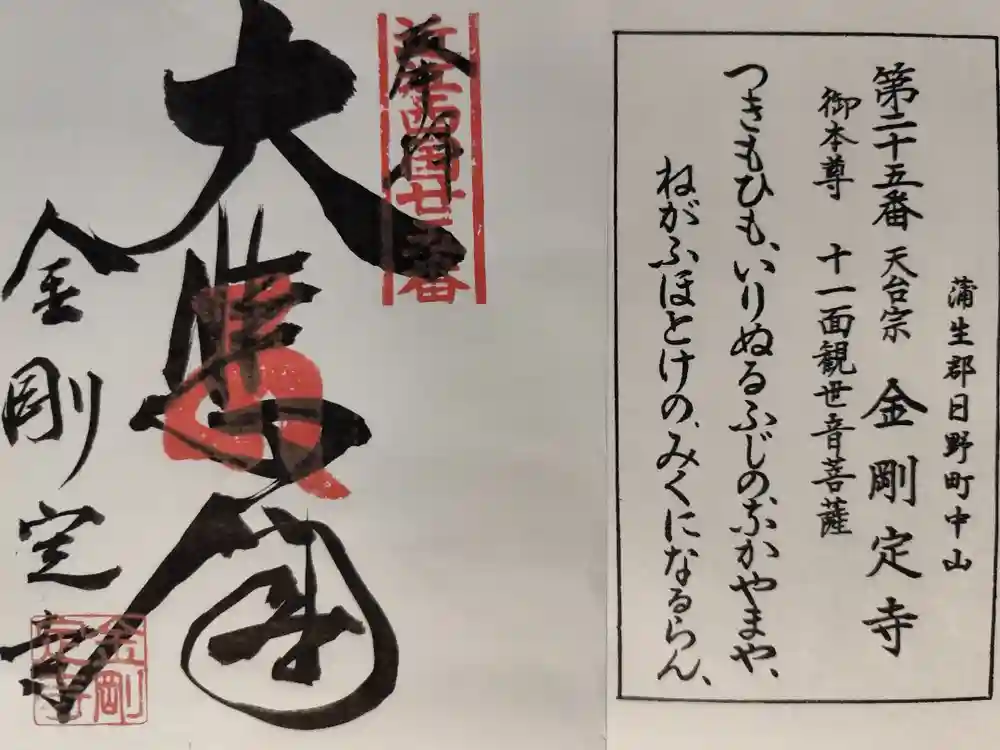 蒲生郡日野町中山
第二十五番 天台宗 金剛定寺
御本尊 十一面観世音菩薩
つきもひも、いりぬるふじのなかやまや、
ねがふほとけの、みくになるらん、
奉拝
近江西国廿五番
大悲閣
金剛定寺
金剛定寺